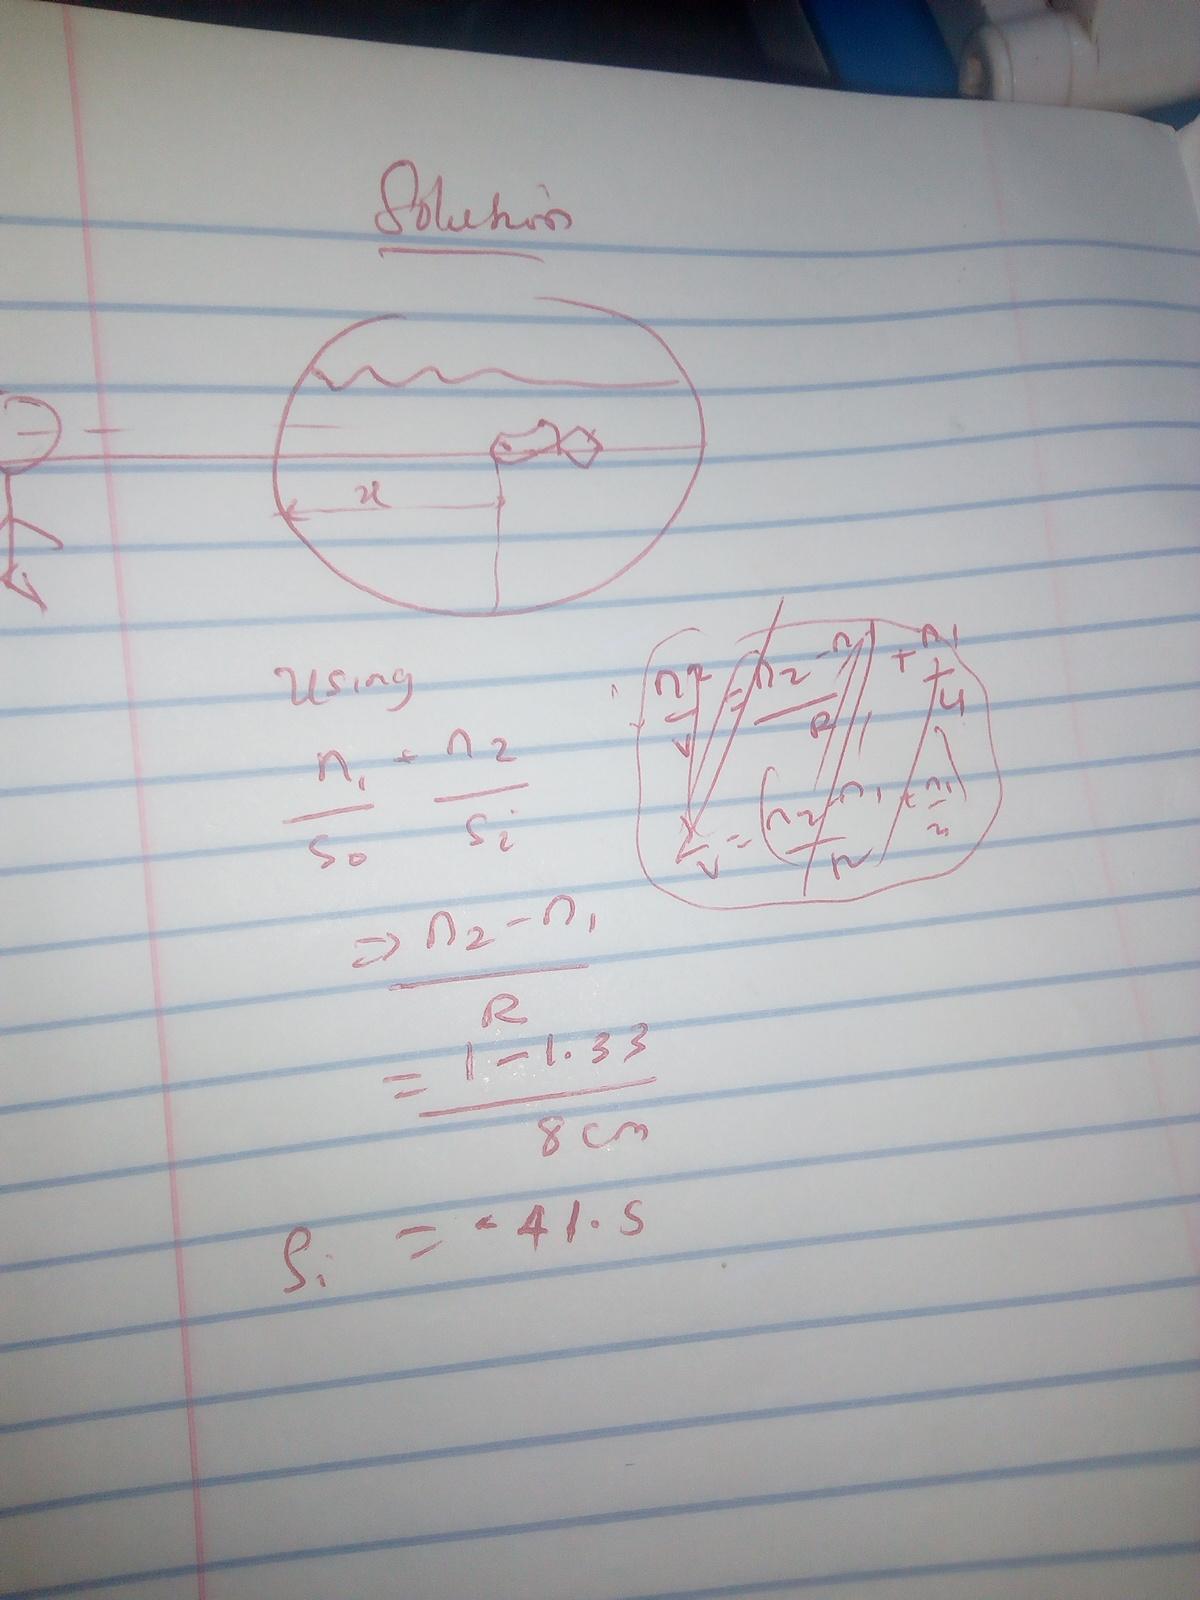 Solution
x
Using
n₁ + n₂
S₀ Sᵢ
⇒ n₂ - n₁
R
= 1 - 1.33
8cm
Sᵢ = -41.5